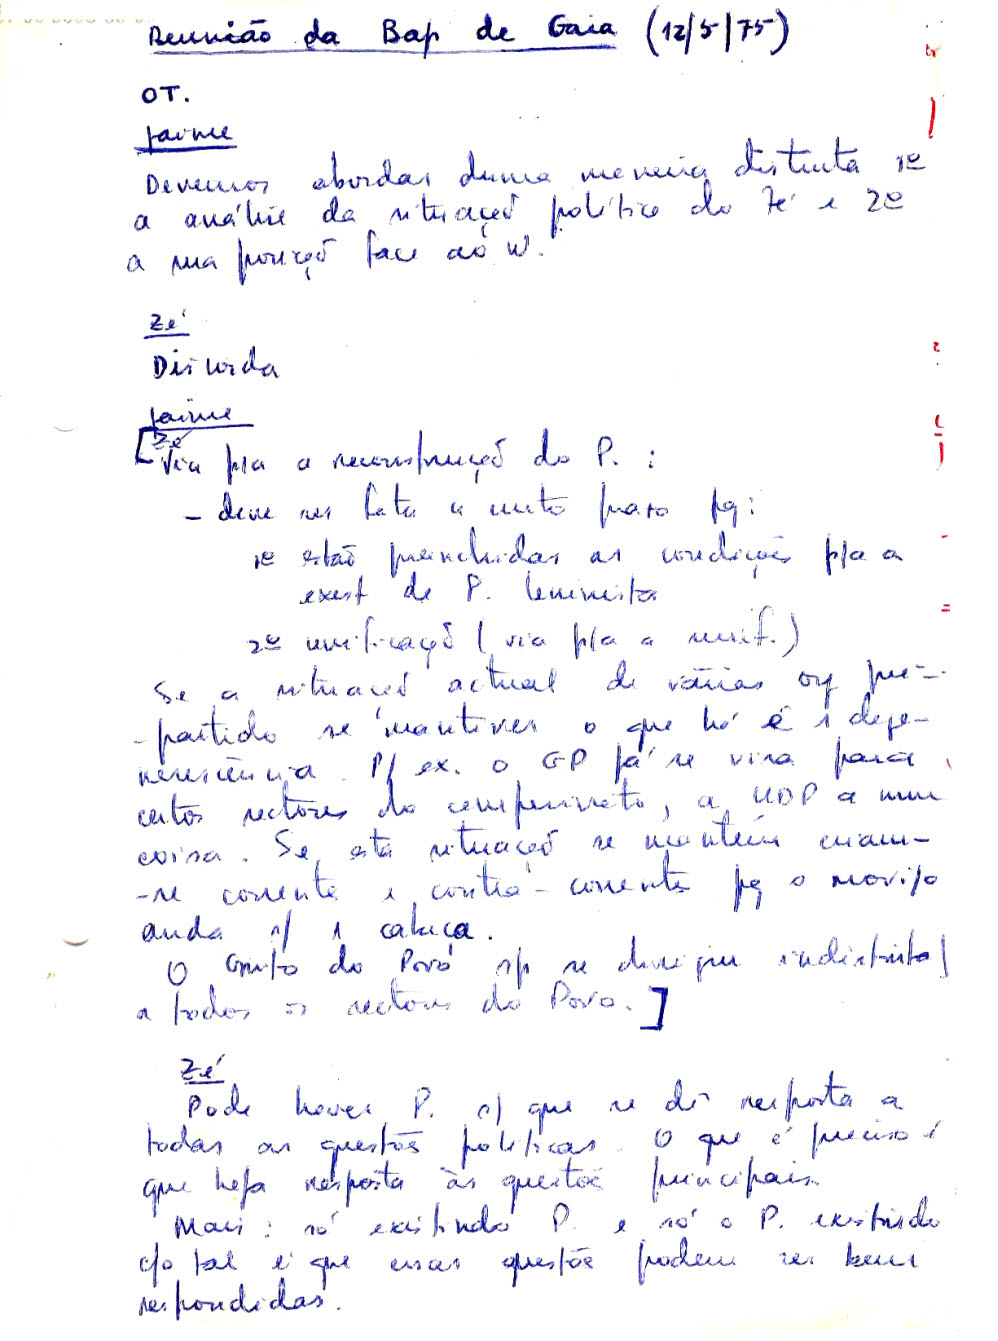 Reunião da Bap de Gaia (12/5/75)
OT.
Jaime
Devemos abordar duma maneira distinta 1º
a análise da situaçaõ política do Zé e 2º
a sua posiçaõ face ao
Zé
Discorda
Jaime
[Zé
Via p/a a reconstruçaõ do P. :
- deve ser feita a curto prazo pq:
1º estão preenchidas as condições p/a a
exist de P. leninista
2º unificaçaõ (via p/a a unif.)
Se a situaçaõ actual de várias org pré-
-partido se mantiver o que há é 1 dege-
nerescência. P/ ex. o GP já se vira para
certos sectores do campesinato, a UDP a mm
coisa. Se esta situaçaõ se mantém criam-
-se corrente e contra-corrente pq o movi/o
anda s/ 1 cabeça.
O Grito do Povo sp se dirigiu indistinta/
a todos os sectores do Povo.]
Zé
Pode haver P. s/ que se dê resposta a
todas as questões políticas. O que é preciso é
que haja resposta às questões principais.
Mais: só existindo P. e só o P. existindo
c/o tal é que essas questões podem ser bem
respondidas.